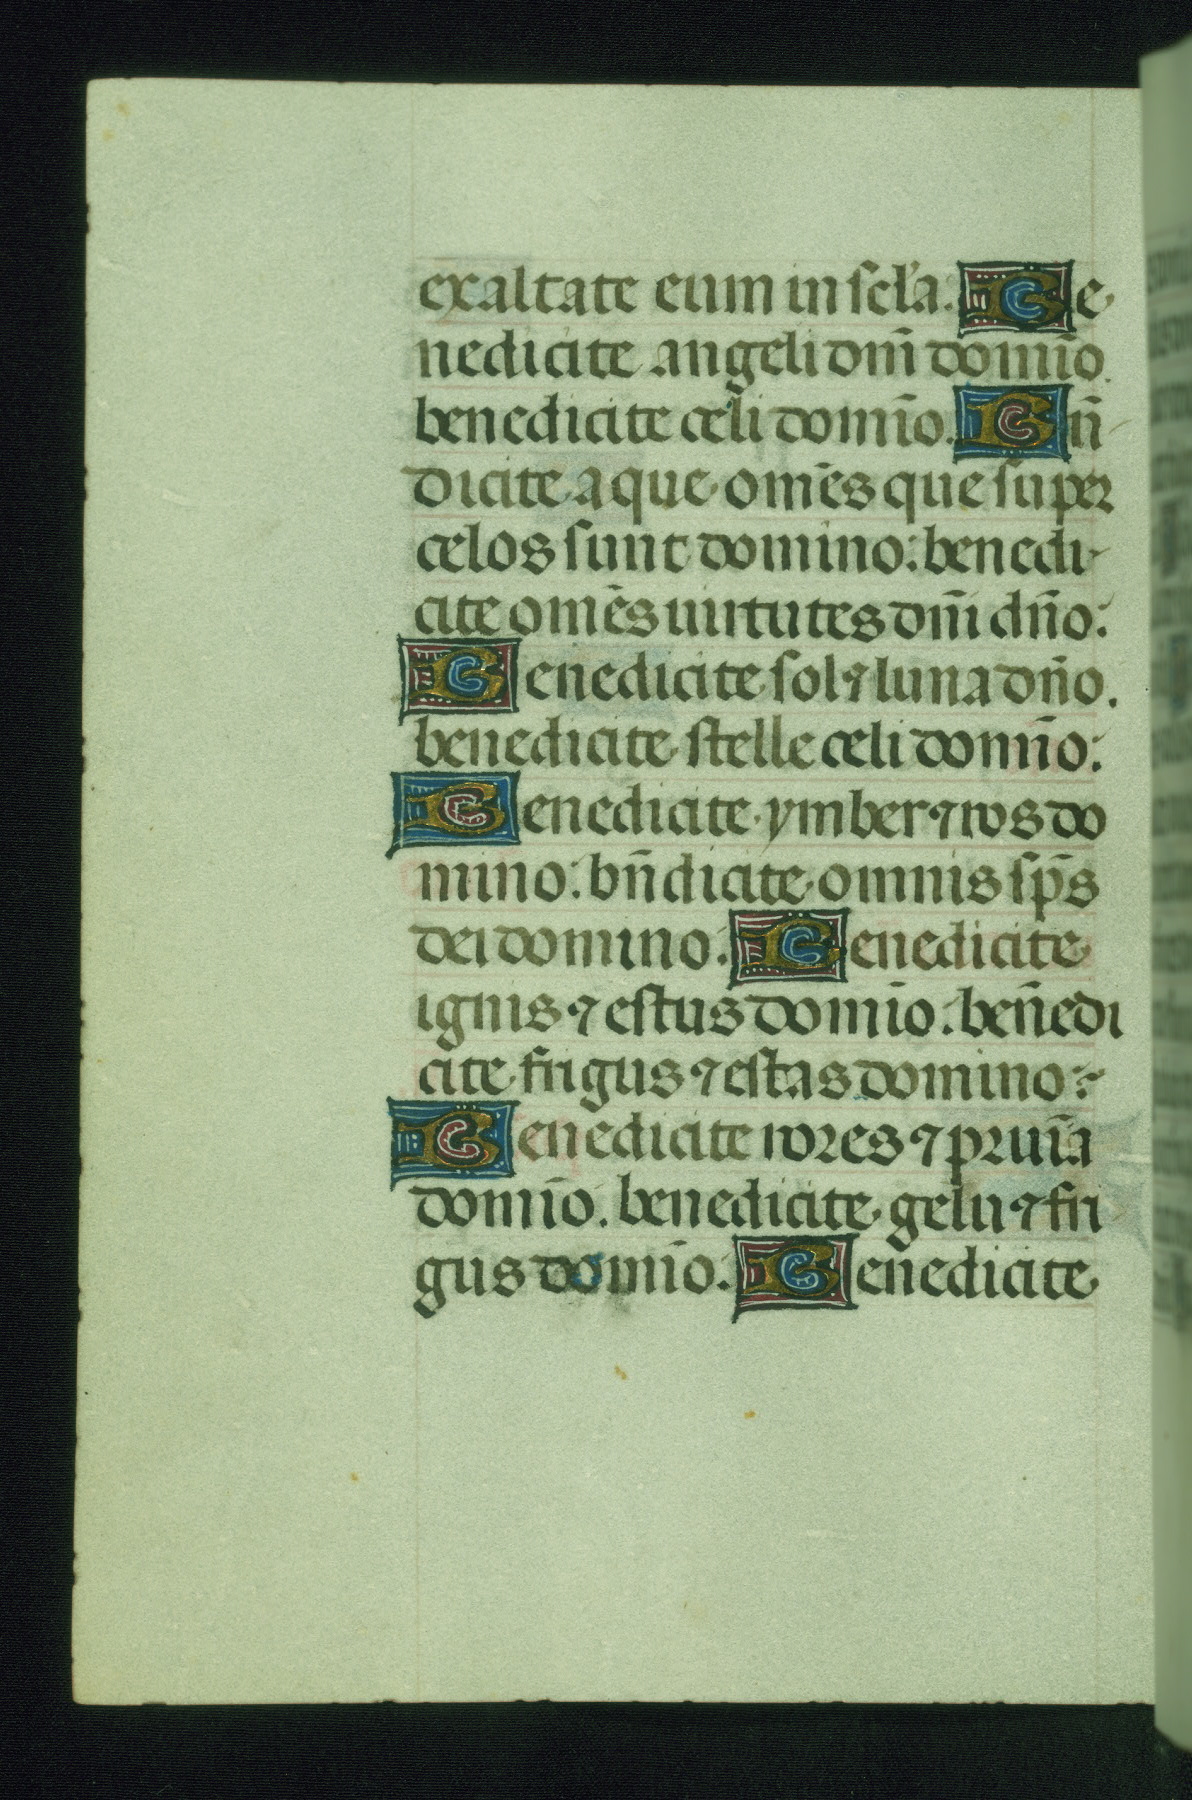 exaltate eum in scl'a. Be
nedicite angeli dnī domīo
benedicite celi domīo. Bn̄
dicite aque om̄es que super
celos sunt domino: benedi-
cite om̄es uirtutes dn̄i dn̄o:
Benedicite sol ⁊ luna dn̄o.
benedicite stelle celi domīo:
Benedicite ymber ⁊ ros do
mino: bn̄dicite omnis sp̄s
dei domino: Benedicite
ignis ⁊ estus domīo: ben̄edi
cite frigus ⁊ estas domino:
Benedicite rores ⁊ pruīa
domīo. benedicite gelu ⁊ fri
gus domīo: Benedicite